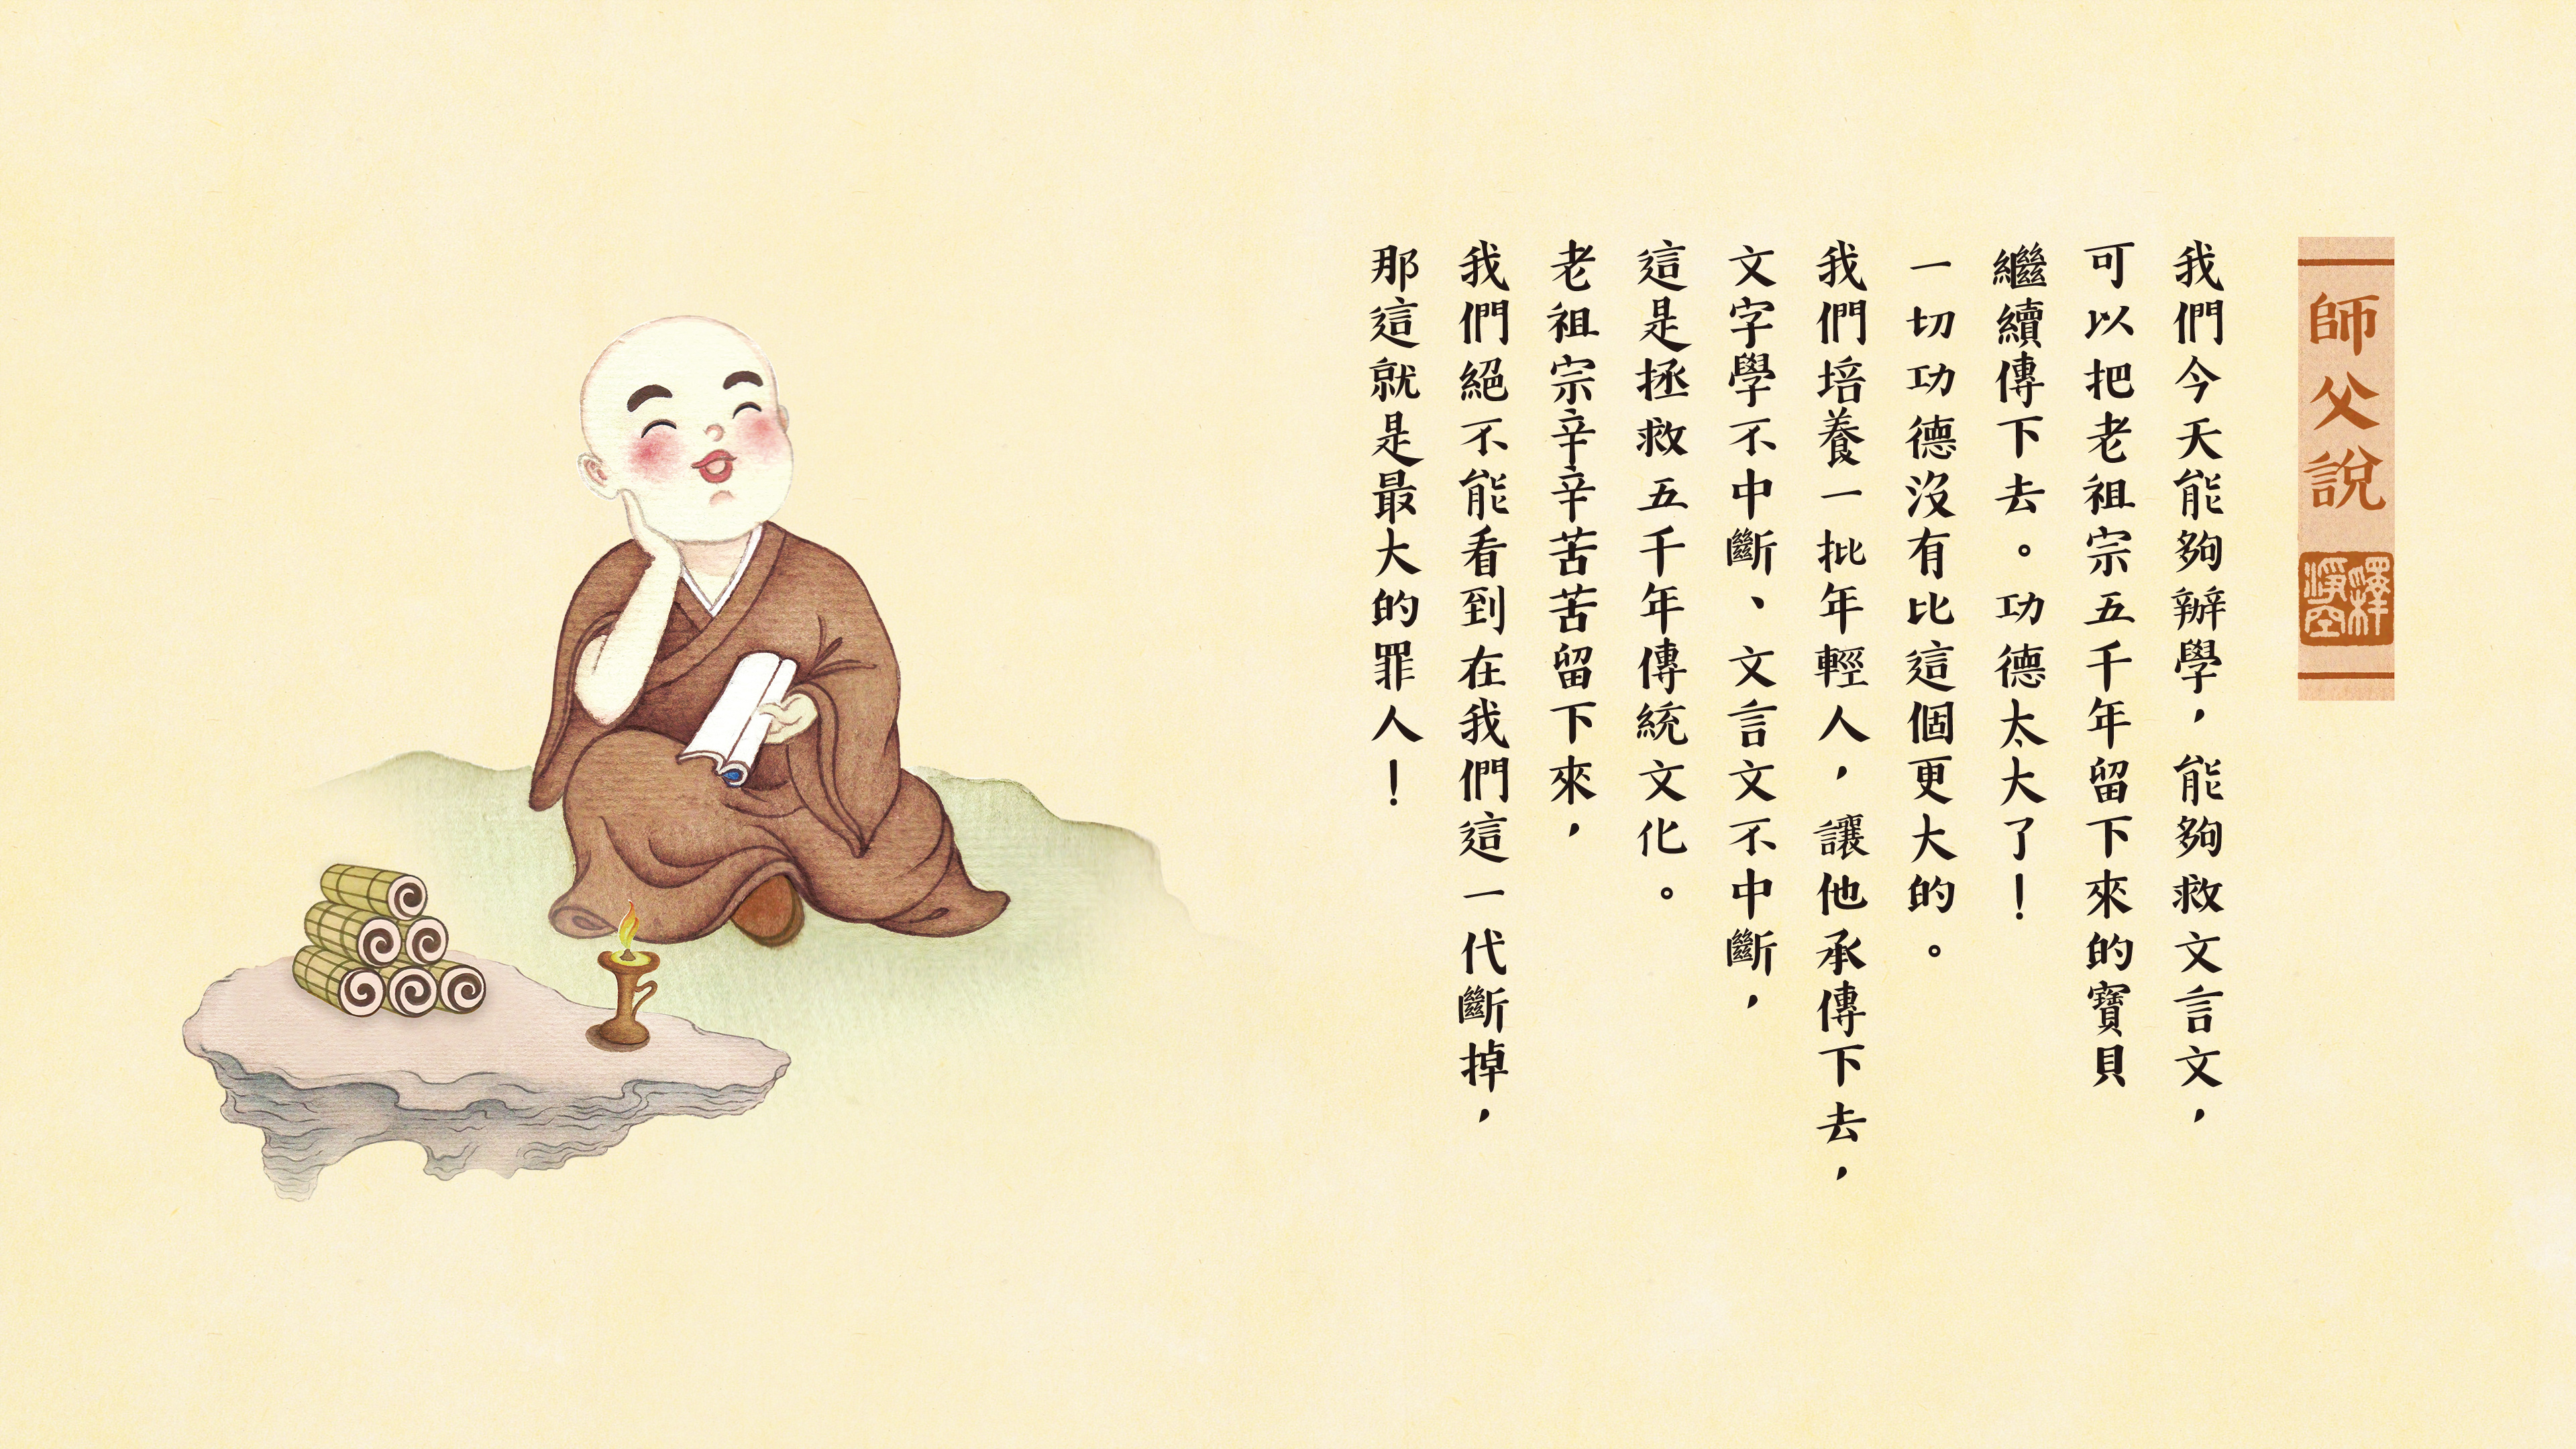 師父說
釋淨空
我們今天能夠辦學，能夠救文言文，
可以把老祖宗五千年留下來的寶貝
繼續傳下去。功德太大了！
一切功德沒有比這個更大的。
我們培養一批年輕人，讓他承傳下去，
文字學不中斷、文言文不中斷，
這是拯救五千年傳統文化。
老祖宗辛辛苦苦留下來，
我們絕不能看到在我們這一代斷掉，
那這就是最大的罪人！